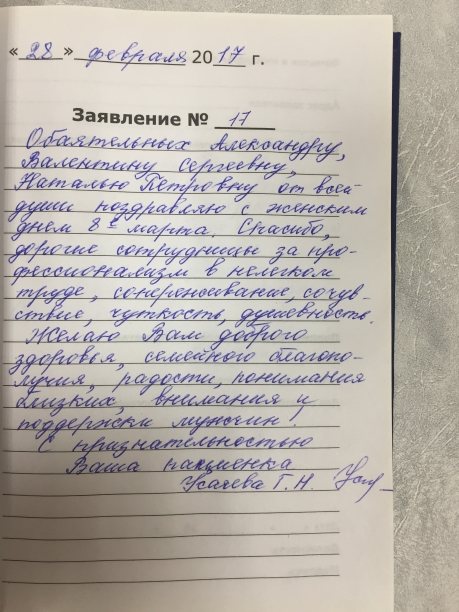 « 28 » февраля 2017 г.
Заявление № 17
Обаятельных Александру,
Валентину Сергеевну,
Наталью Петровну от всей
души поздравляю с женским
днем 8 марта. Спасибо,
дорогие сотрудницы за про-
фессионализм в нелегком
труде, сопереживание, сочув-
ствие, чуткость, душевность.
Желаю Вам доброго
здоровья, семейного благопо-
лучия, радости, понимания
близких, внимания и
поддержки мужчин!
С признательностью
Ваша пациентка
Усачева Г. Н.